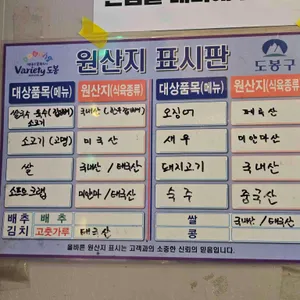 Variety 도봉
원산지 표시판
도봉구
대상품목(메뉴) 원산지(식육종류) 대상품목(메뉴) 원산지(식육종류)
쌀국수 육수
소고기
국내산
오징어
소고기 (고명) 미국산 새우 미얀마산
쌀 국내산 / 태국산 돼지고기 국내산
미얀마 / 태국산 숙주 중국산
배추 배추 쌀 국내산 / 태국산
김치 고춧가루 태국산 콩
올바른 원산지 표시는 고객과의 소중한 신뢰와 믿음입니다.